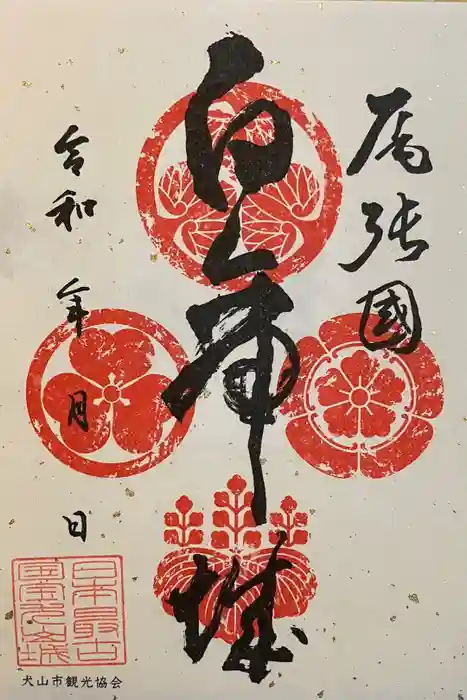 尾張國
白帝城
令和 年 月 日
日本最古
犬山市観光協会